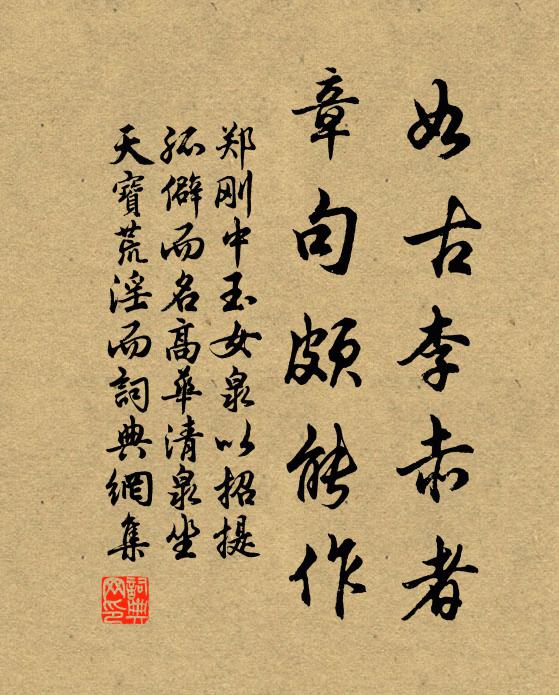 如古李赤者
章句颇能作
郑刚中玉女泉以招提
孤僻而名高华清泉坐
天寶荒淫而詞典網集
詞典网印